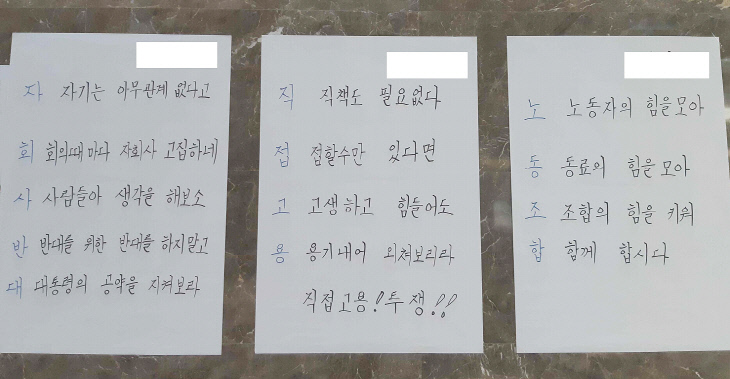 자 자기는 아무관계 없다고
회 회의때마다 자회사 고집하네
사 사람들아 생각을 해보소
반 반대를 위한 반대를 하지말고
대 대통령의 공약을 지켜보라
직 직책도 필요없다
접 접할수만 있다면
고 고생하고 힘들어도
용 용기내어 외쳐보리라
직접고용! 투쟁!!
노 노동자의 힘을모아
동 동료의 힘을모아
조 조합의 힘을 키워
합 함께 합시다